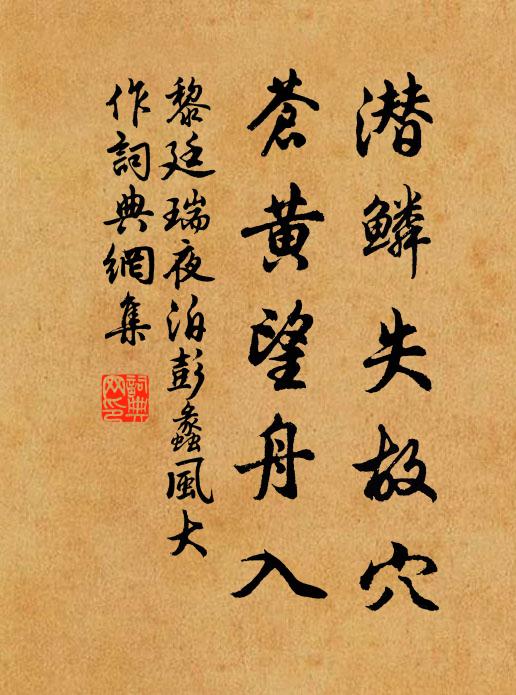 潜鳞失故穴
蒼黄望舟入
黎廷瑞夜泊彭蠡風大
作詞典網集
詞典網印